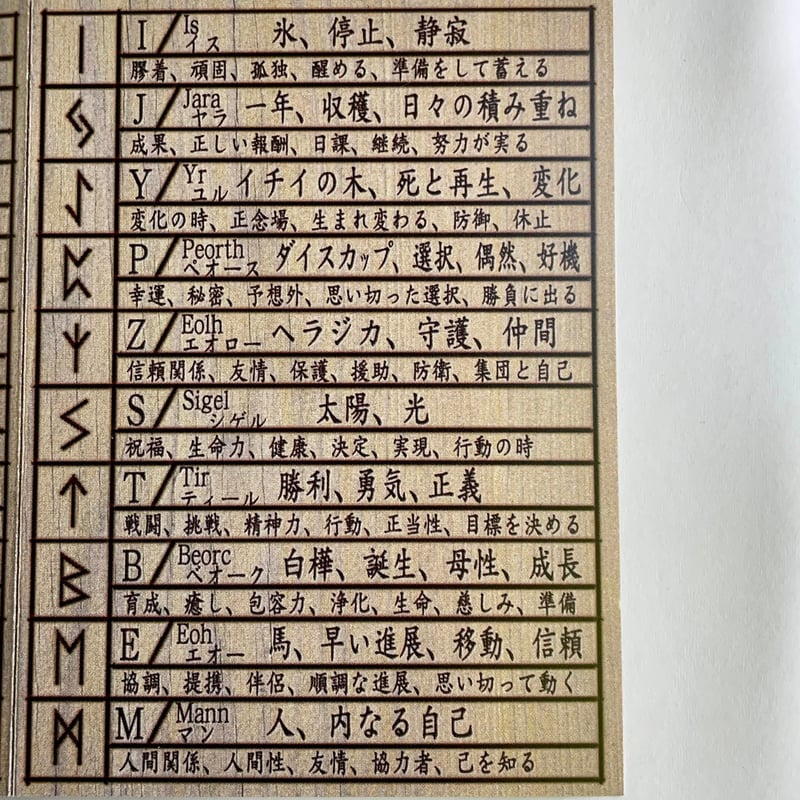 ᛁ I/Is イス 氷、停止、静寂
膠着、頑固、孤独、醒める、準備をして蓄える
J/Jara ヤラ 一年、収穫、日々の積み重ね
成果、正しい報酬、日課、継続、努力が実る
ᛇ Y/Yr ユル イチイの木、死と再生、変化
変化の時、正念場、生まれ変わる、防御、休止
ᛈ P/Peorth ペオース ダイスカップ、選択、偶然、好機
幸運、秘密、予想外、思い切った選択、勝負に出る
ᛉ Z/Eolh エオロー ヘラジカ、守護、仲間
信頼関係、友情、保護、援助、防衛、集団と自己
ᛊ S/Sigel シゲル 太陽、光
祝福、生命力、健康、決定、実現、行動の時
ᛏ T/Tir ティール 勝利、勇気、正義
戦闘、挑戦、精神力、行動、正当性、目標を決める
ᛒ B/Beorc ベオーク 白樺、誕生、母性、成長
育成、癒し、包容力、浄化、生命、慈しみ、準備
ᛖ E/Eoh エオー 馬、早い進展、移動、信頼
協調、提携、伴侶、順調な進展、思い切って動く
ᛗ M/Mann マン 人、内なる自己
人間関係、人間性、友情、協力者、己を知る